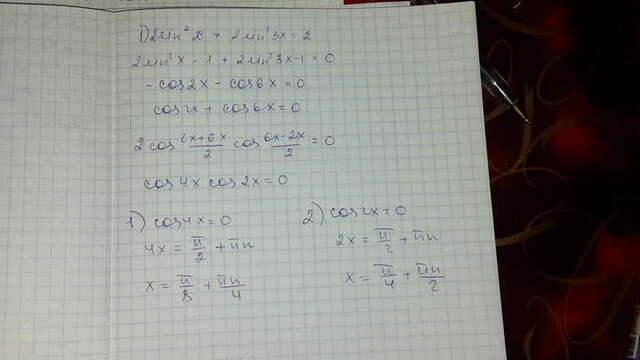 1) 2sin²x + 2sin²3x = 2
2sin²x - 1 + 2sin²3x - 1 = 0
- cos2x - cos6x = 0
cos2x + cos6x = 0
2cos (2x+6x)/2 cos (6x-2x)/2 = 0
cos4x cos2x = 0
1) cos4x = 0
4x = π/2 + πn
x = π/8 + πn/4
2) cos2x = 0
2x = π/2 + πn
x = π/4 + πn/2